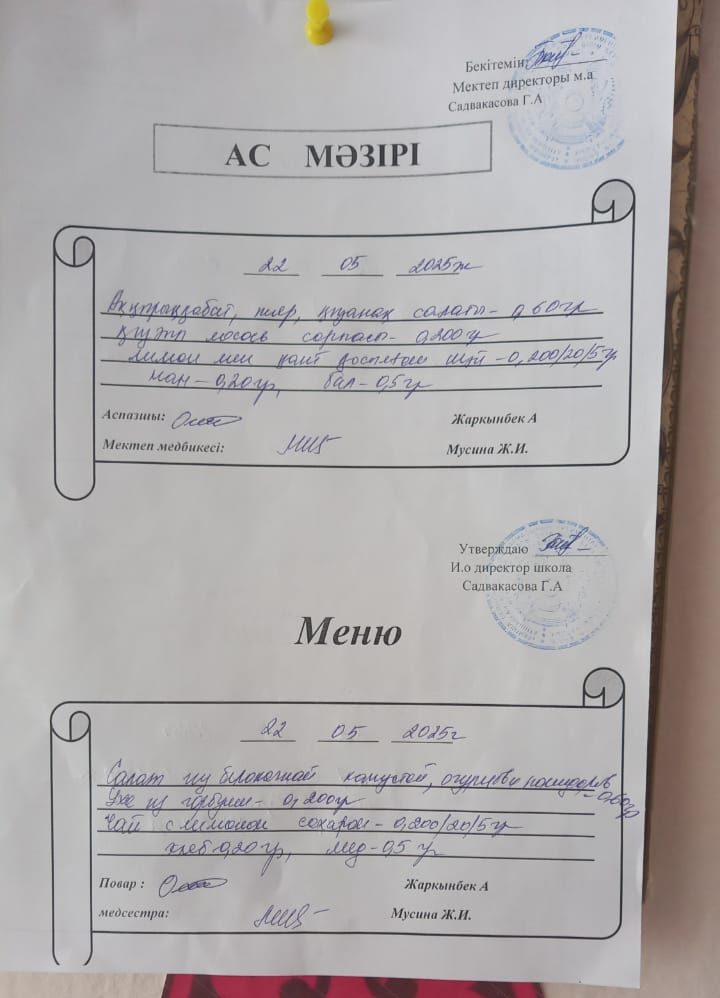 Бекітемін:
Мектеп директоры м.а
Садвакасова Г.А
АС МӘЗІРІ
22 05 2025ж
салаты- 0,60гр
лосось сорпасы- 0,200гр
лимон мен қант қосылған шәй -0,200/20/5гр
нан-0,20гр, бал-0,5гр
Аспазшы:
Жаркынбек А
Мектеп медбикесі:
Мусина Ж.И.
Утверждаю
И.о директор школа
Садвакасова Г.А
Меню
22 05 2025г
Салат из белокочанной капустой, огурцов и помидоров
-0,60гр
Уха из горбуши- 0,200гр
Чай с лимоном сахаром-0,200/20/5гр
хлеб-0,20гр, мед-0,5 гр
Повар :
Жаркынбек А
медсестра:
Мусина Ж.И.